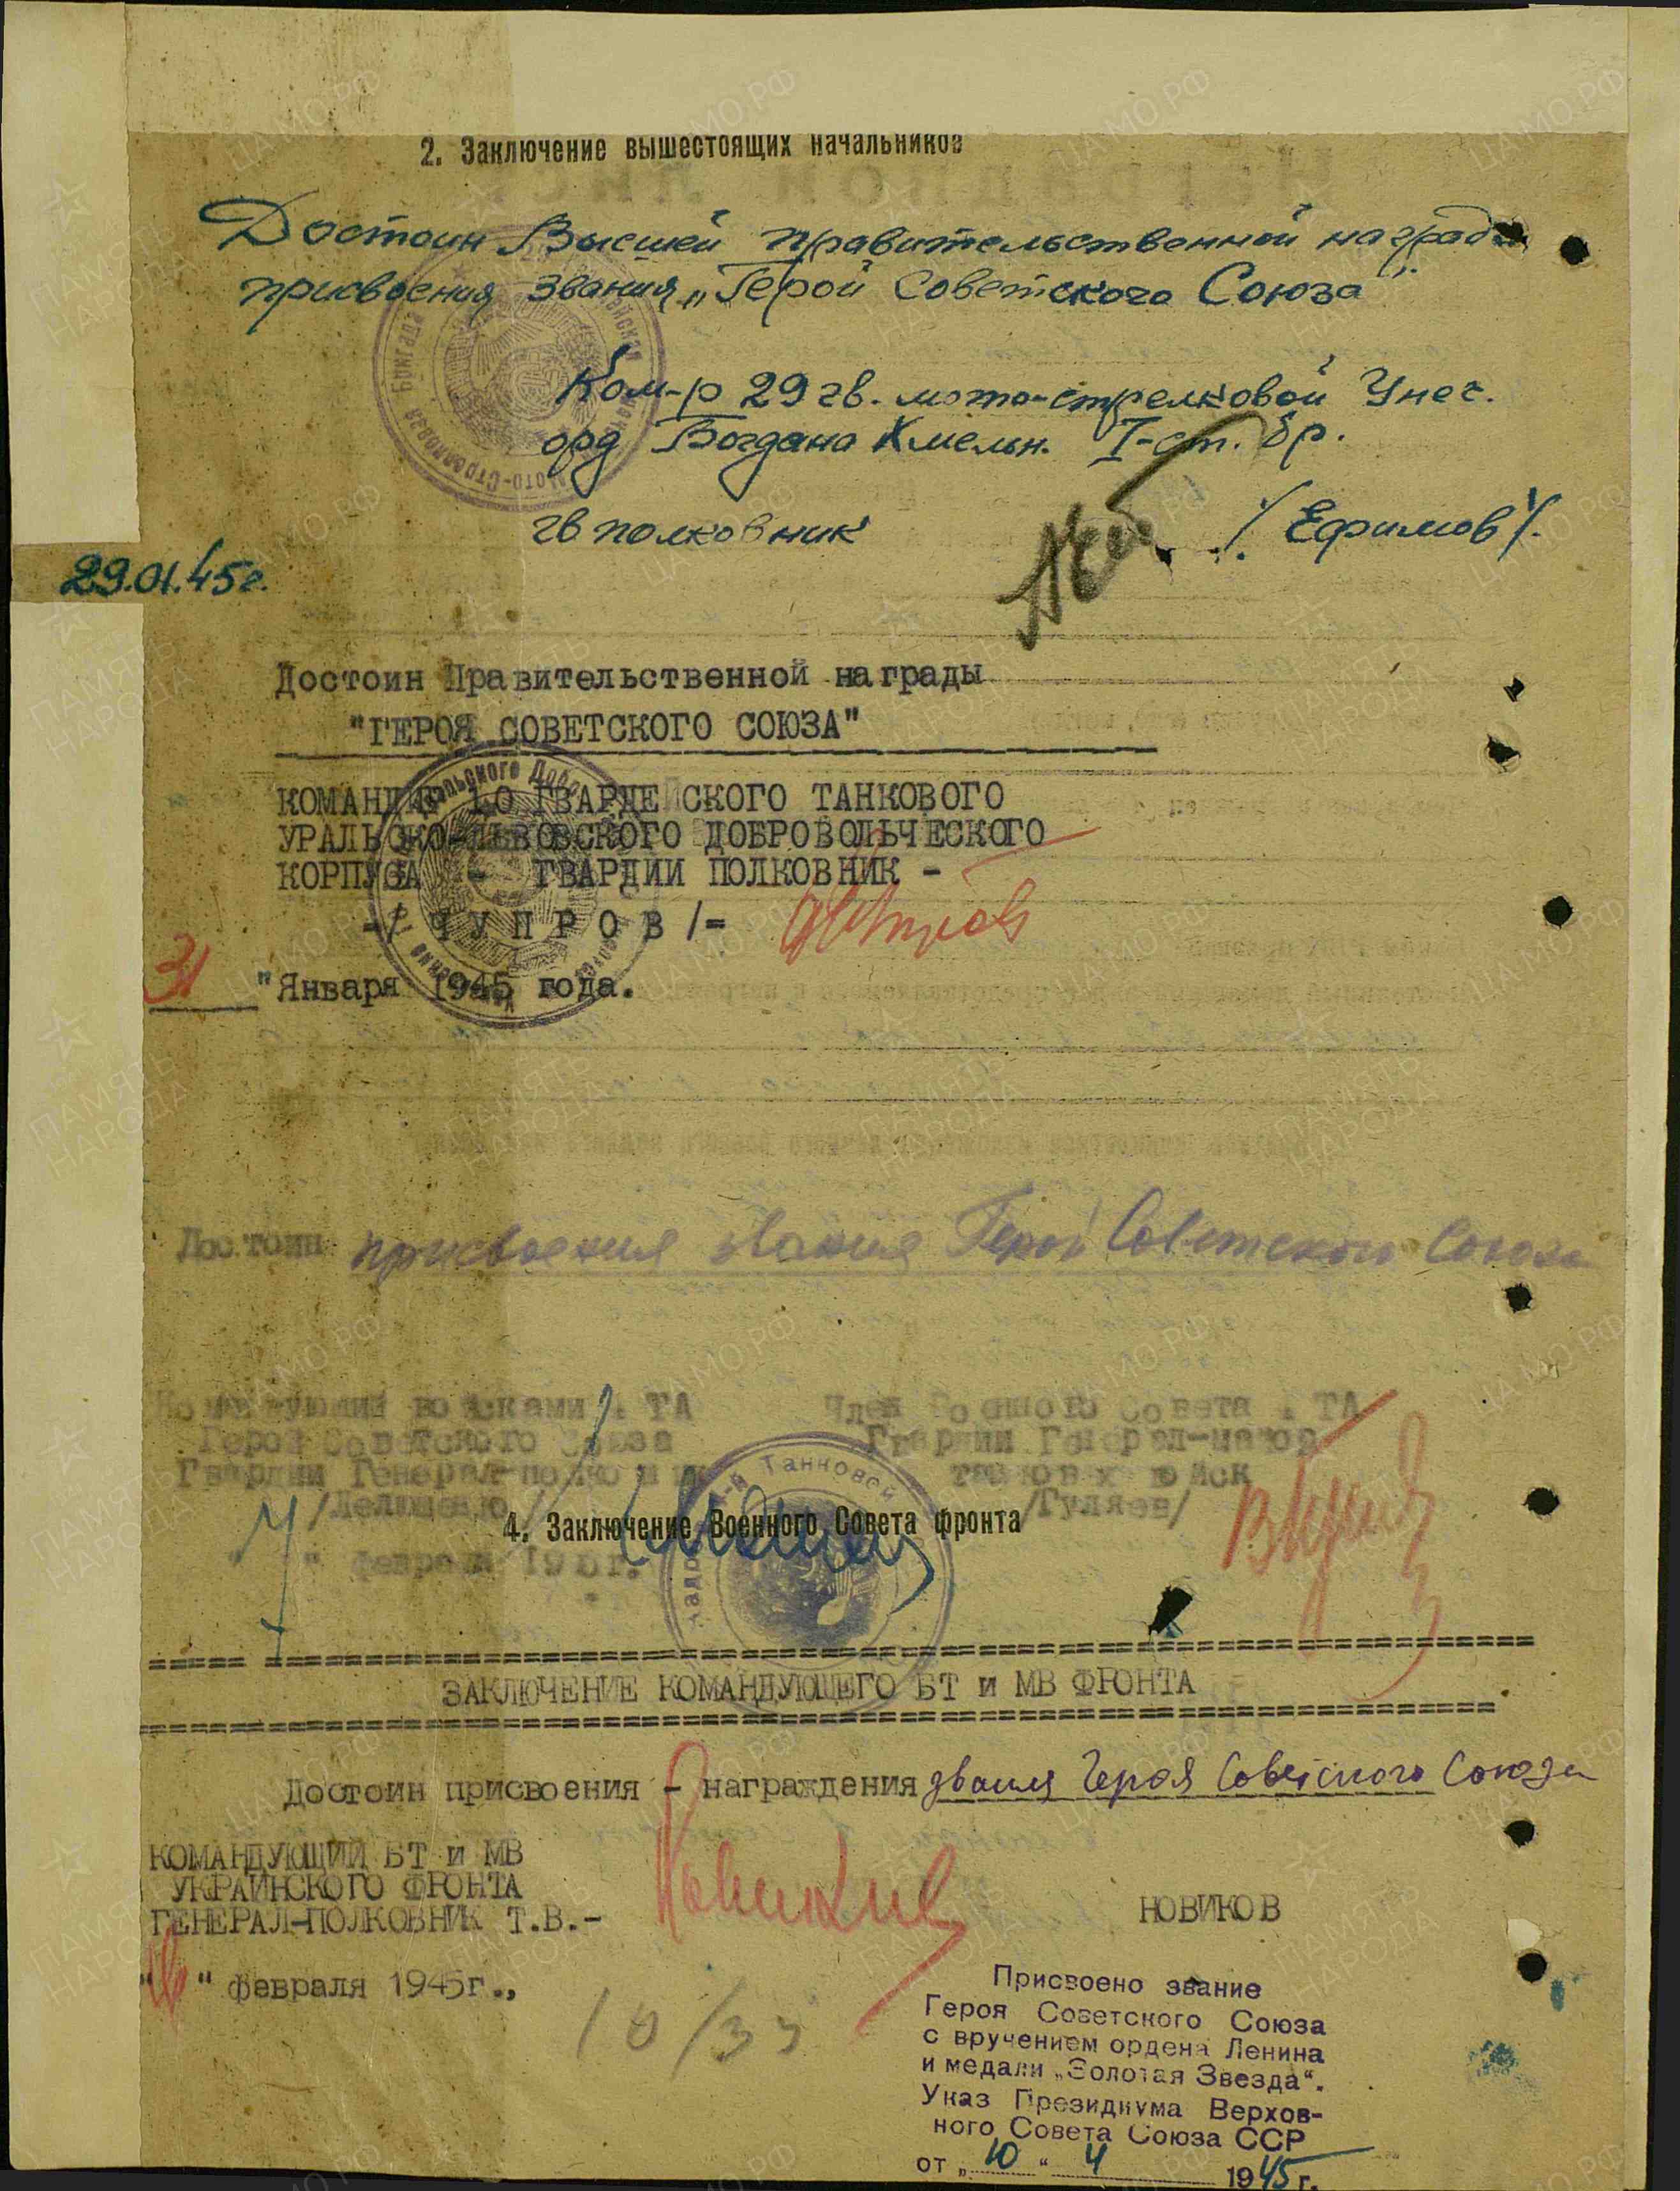 2. Заключение вышестоящих начальников
Достоин Высшей правительственной награды
присвоения звания „Герой Советского Союза"
Ком-р 29 гв. мото-стрелковой Унеч.
орд Богдана Хмельн. I-ст. бр.
гв полковник /Ефимов/.
29.01.45г.
Достоин Правительственной награды
"ГЕРОЯ СОВЕТСКОГО СОЮЗА"
КОМАНДИР 10 ГВАРДЕЙСКОГО ТАНКОВОГО
УРАЛЬСКО-ЛЬВОВСКОГО ДОБРОВОЛЬЧЕСКОГО
КОРПУСА - ГВАРДИИ ПОЛКОВНИК -
-/ ЧУПРОВ /-
31 "Января 1945 года.
Достоин присвоения звания Герой Советского Союза
Командующий войсками ТА Член Военного Совета ТА
Герой Советского Союза Гвардии Генерал-майор
Гвардии Генерал-полковник танковых войск
/Лелюшенко/ /Гуляев/
4. Заключение Военного Совета фронта
" февраля 1945г.
ЗАКЛЮЧЕНИЕ КОМАНДУЮЩЕГО БТ и МВ ФРОНТА
Достоин присвоения - награждения звания Героя Советского Союза
КОМАНДУЮЩИЙ БТ и МВ
УКРАИНСКОГО ФРОНТА
ГЕНЕРАЛ-ПОЛКОВНИК Т.В.- НОВИКОВ
" февраля 1945г.,
10/33
Присвоено звание
Героя Советского Союза
с вручением ордена Ленина
и медали „Золотая Звезда".
Указ Президиума Верхов-
ного Совета Союза ССР
от „10" 4 1945 г.